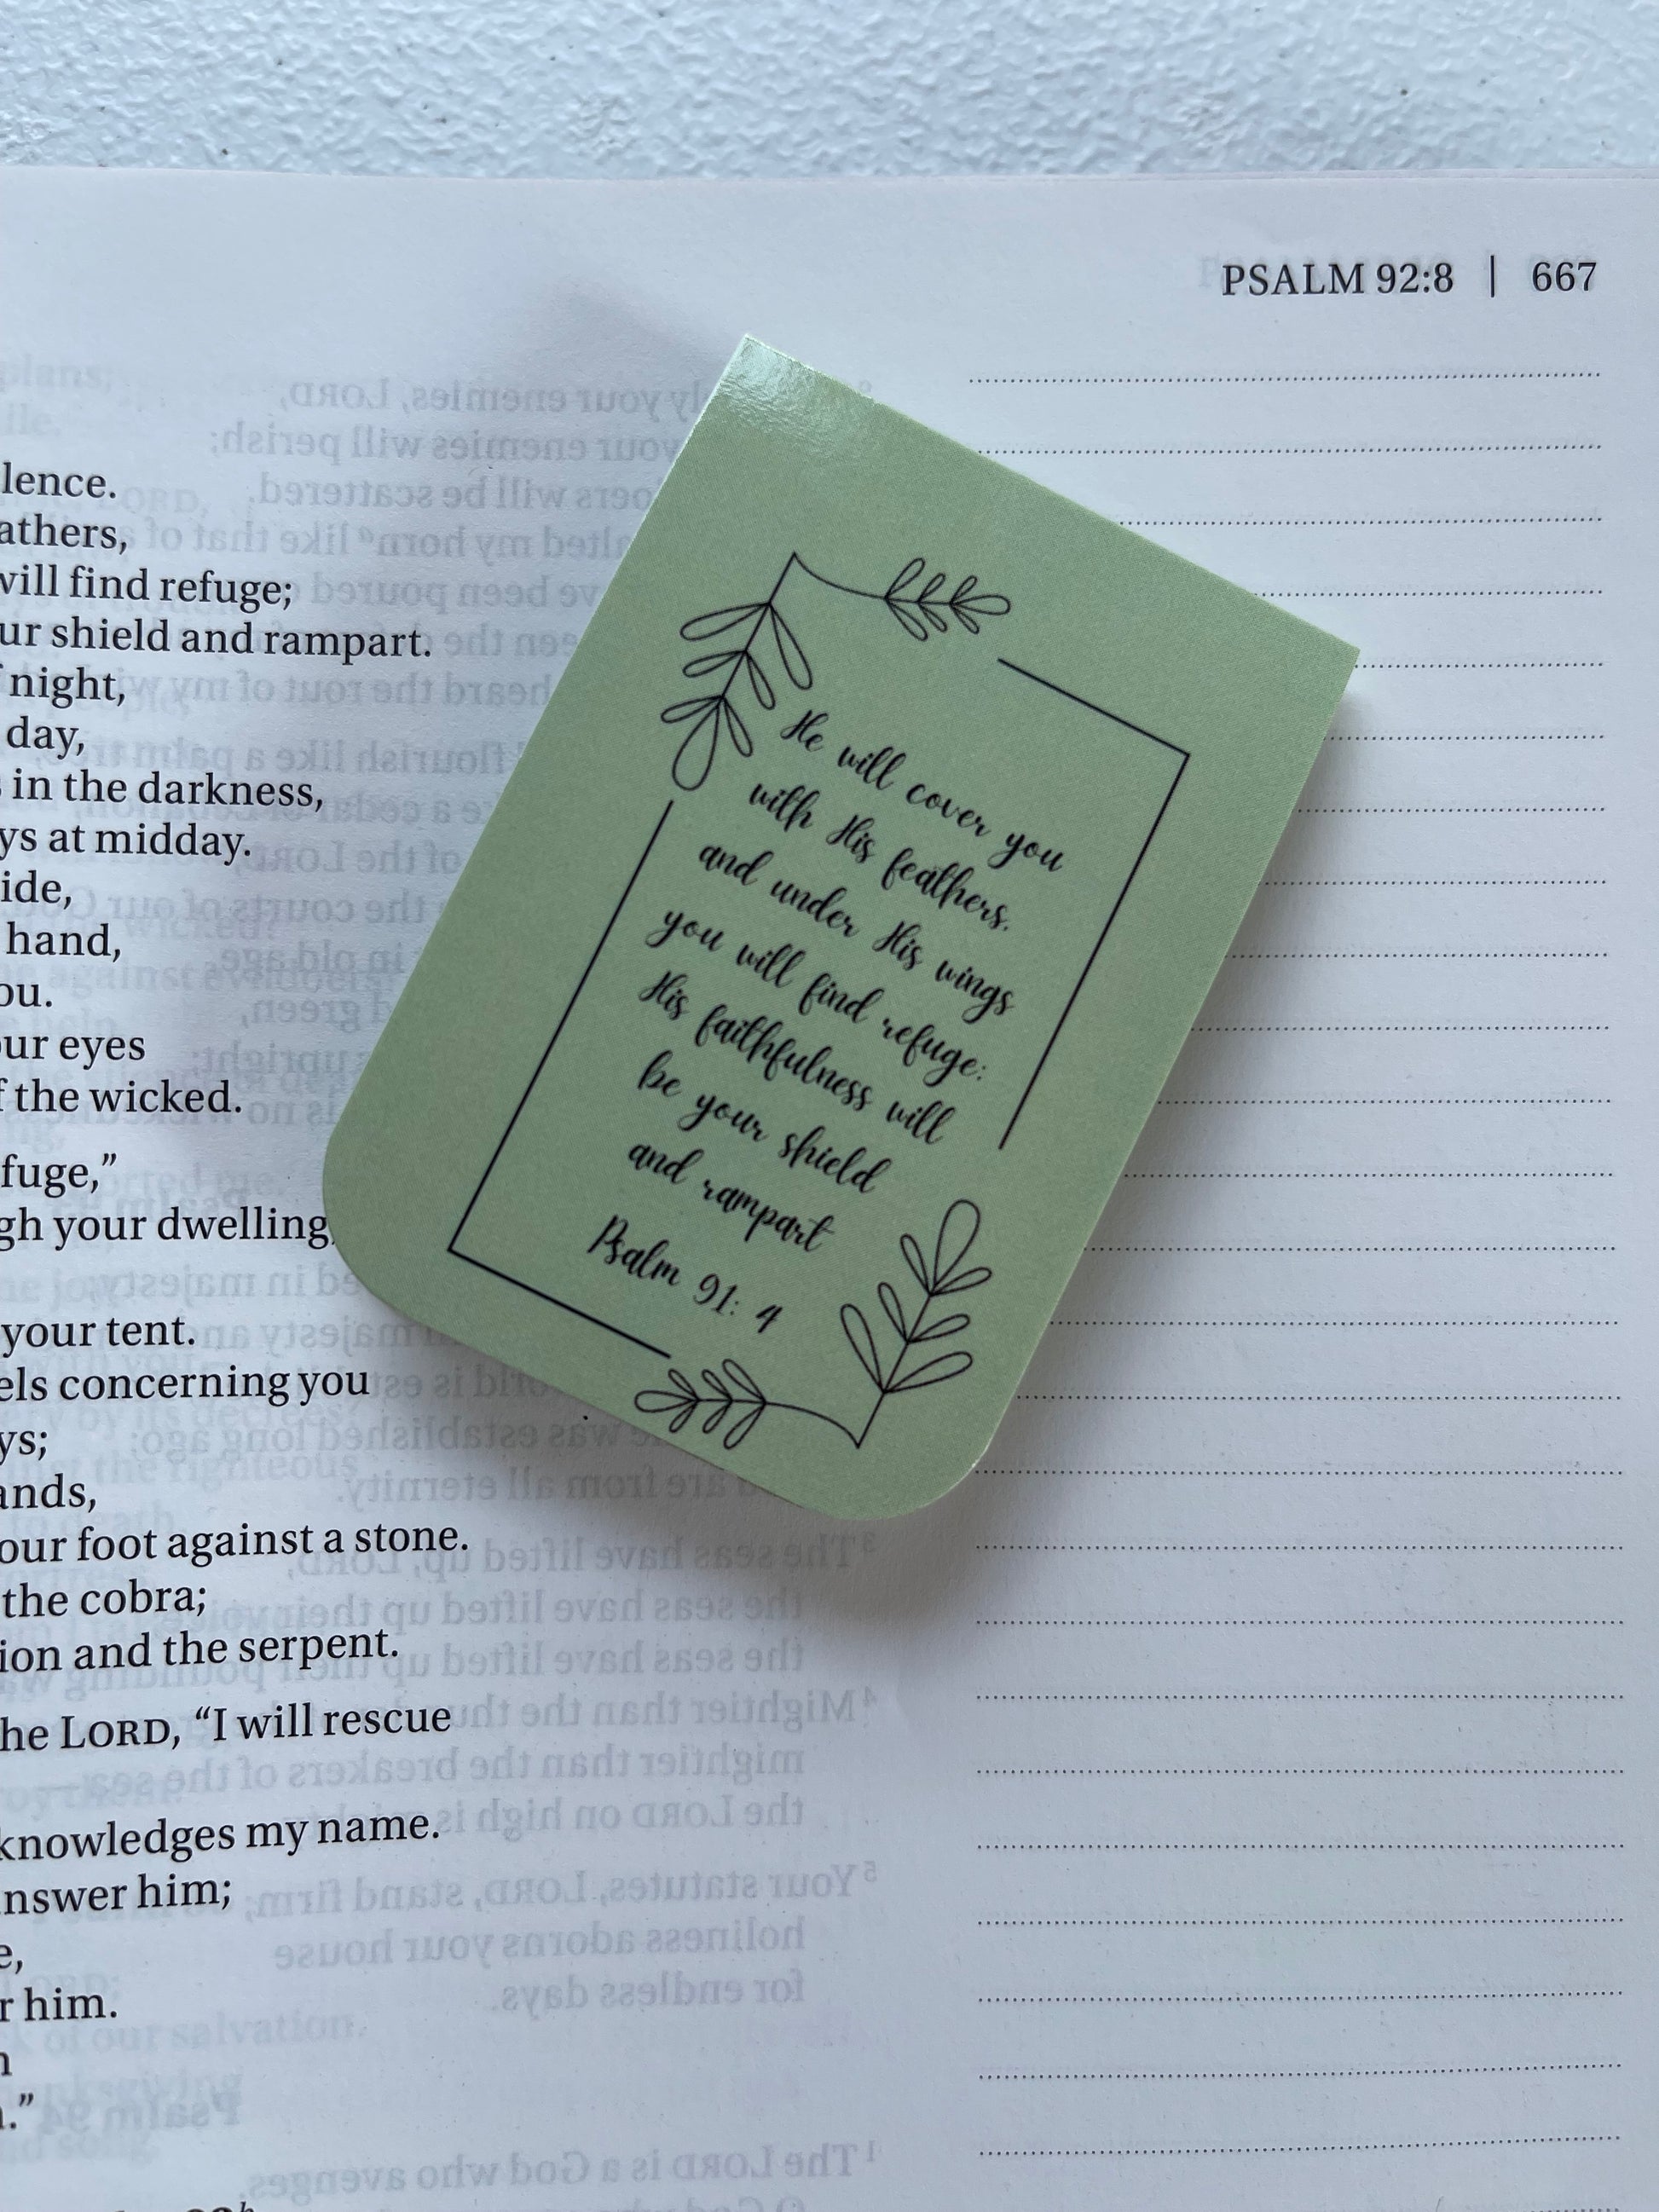 PSALM 92:8 | 667
lence.
athers,
will find refuge;
ur shield and rampart.
night,
day,
in the darkness,
ys at midday.
ide,
hand,
ou.
our eyes
f the wicked.
fuge,”
gh your dwelling,
your tent.
els concerning you
ys;
ands,
our foot against a stone.
the cobra;
ion and the serpent.
he LORD, “I will rescue
knowledges my name.
nswer him;
e,
r him.
.”
He will cover you
with His feathers.
and under His wings
you will find refuge:
His faithfulness will
be your shield
and rampart
Psalm 91: 4